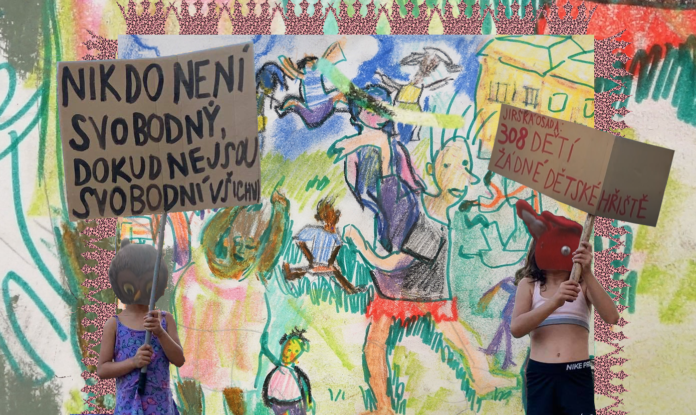 NIKDO NENÍ
SVOBODNÝ,
DOKUD NEJSOU
SVOBODNÍ VŠICHNI
JIRSKÁ OSADA:
308 DĚTÍ
ŽÁDNÉ DĚTSKÉ HŘIŠTĚ
NIKE PRO